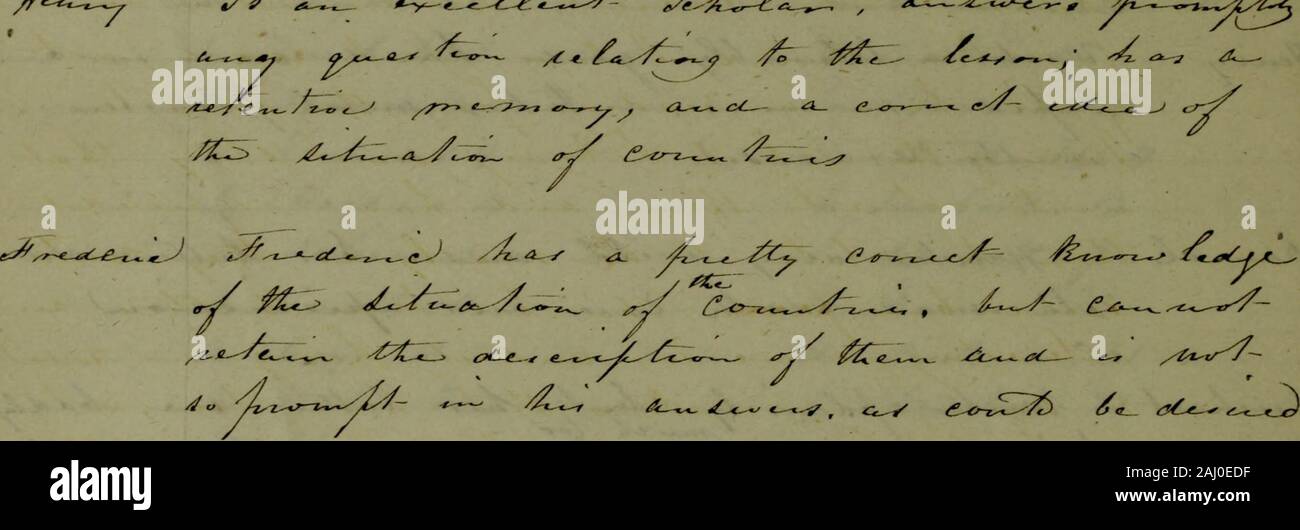 Henry Is an excellent Scholar, answers promptly
any question relating to the lesson; has a
retentive memory, and a correct idea of
the situation of countries
Frederic Frederic has a pretty correct knowledge
of the situation of the countries, but cannot
retain the description of them and is not
so prompt in his answers, as could be desired
a a a a a alamy a a a
alamy
Image ID: 2AJ0EDF
www.alamy.com